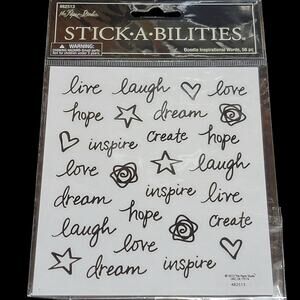 482513
The Paper Studio
STICK•A•BILITIES
WARNING:
CHOKING HAZARD-Small parts
Not for children under 3 years.
Doodle Inspirational Words, 56 pc
live laugh love
hope dream
inspire create
love laugh
dream inspire live
hope create
laugh love
dream inspire
482513